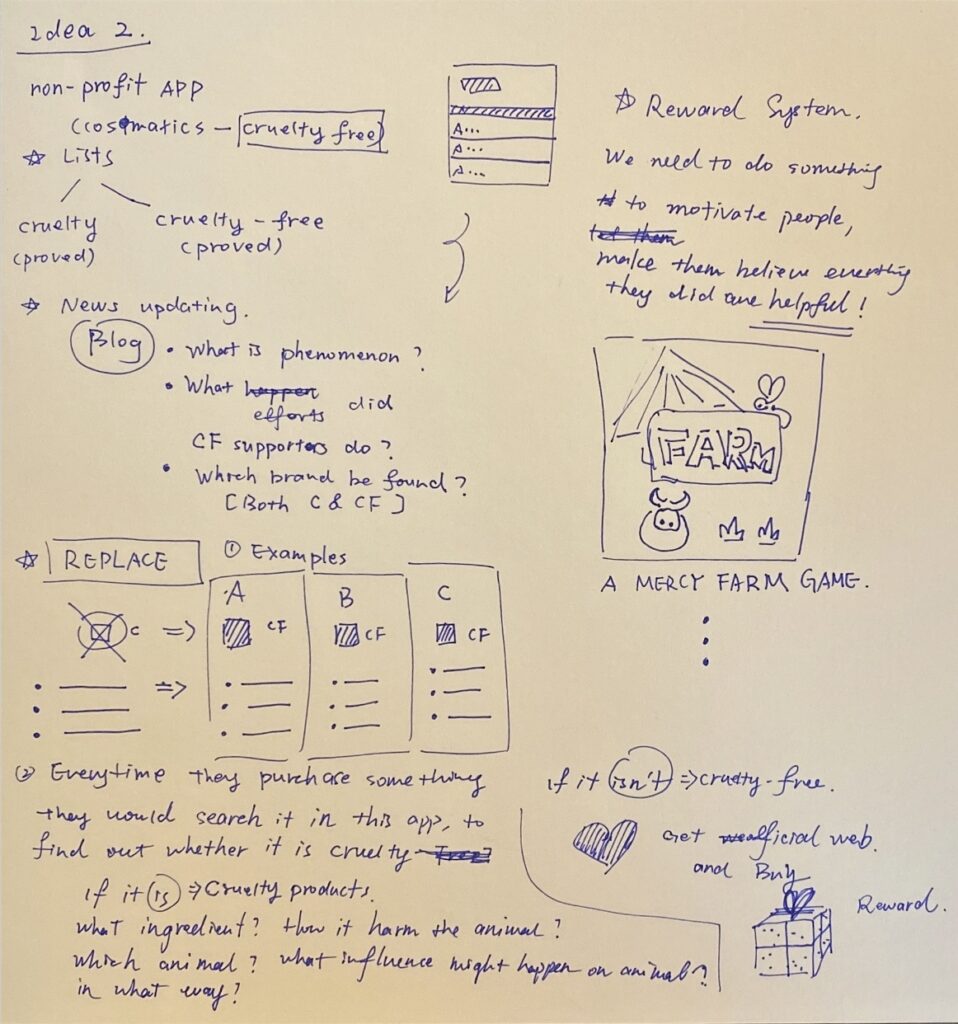 Idea 2.
non-profit APP
(cosmatics - cruelty free)
☆ Lists
cruelty
(proved)
cruelty-free
(proved)
A...
A...
A...
☆ News updating.
Blog
• What is phenomenon?
• What happen
efforts did
CF supporters do?
• Which brand be found?
[Both C & CF]
☆ REPLACE
① Examples
C => A CF B CF C CF
=>
② Everytime they purchase something
they would search it in this app, to
find out whether it is cruelty Free?
if it is => Cruelty products.
what ingredient? How it harm the animal?
which animal? what influence might happen on animal?
in what way?
☆ Reward System.
We need to do something
to motivate people,
let them
make them believe everthing
they did are helpful!
FARM
A MERCY FARM GAME.
if it isn't => cruelty-free.
Get official web.
and Buy
Reward.